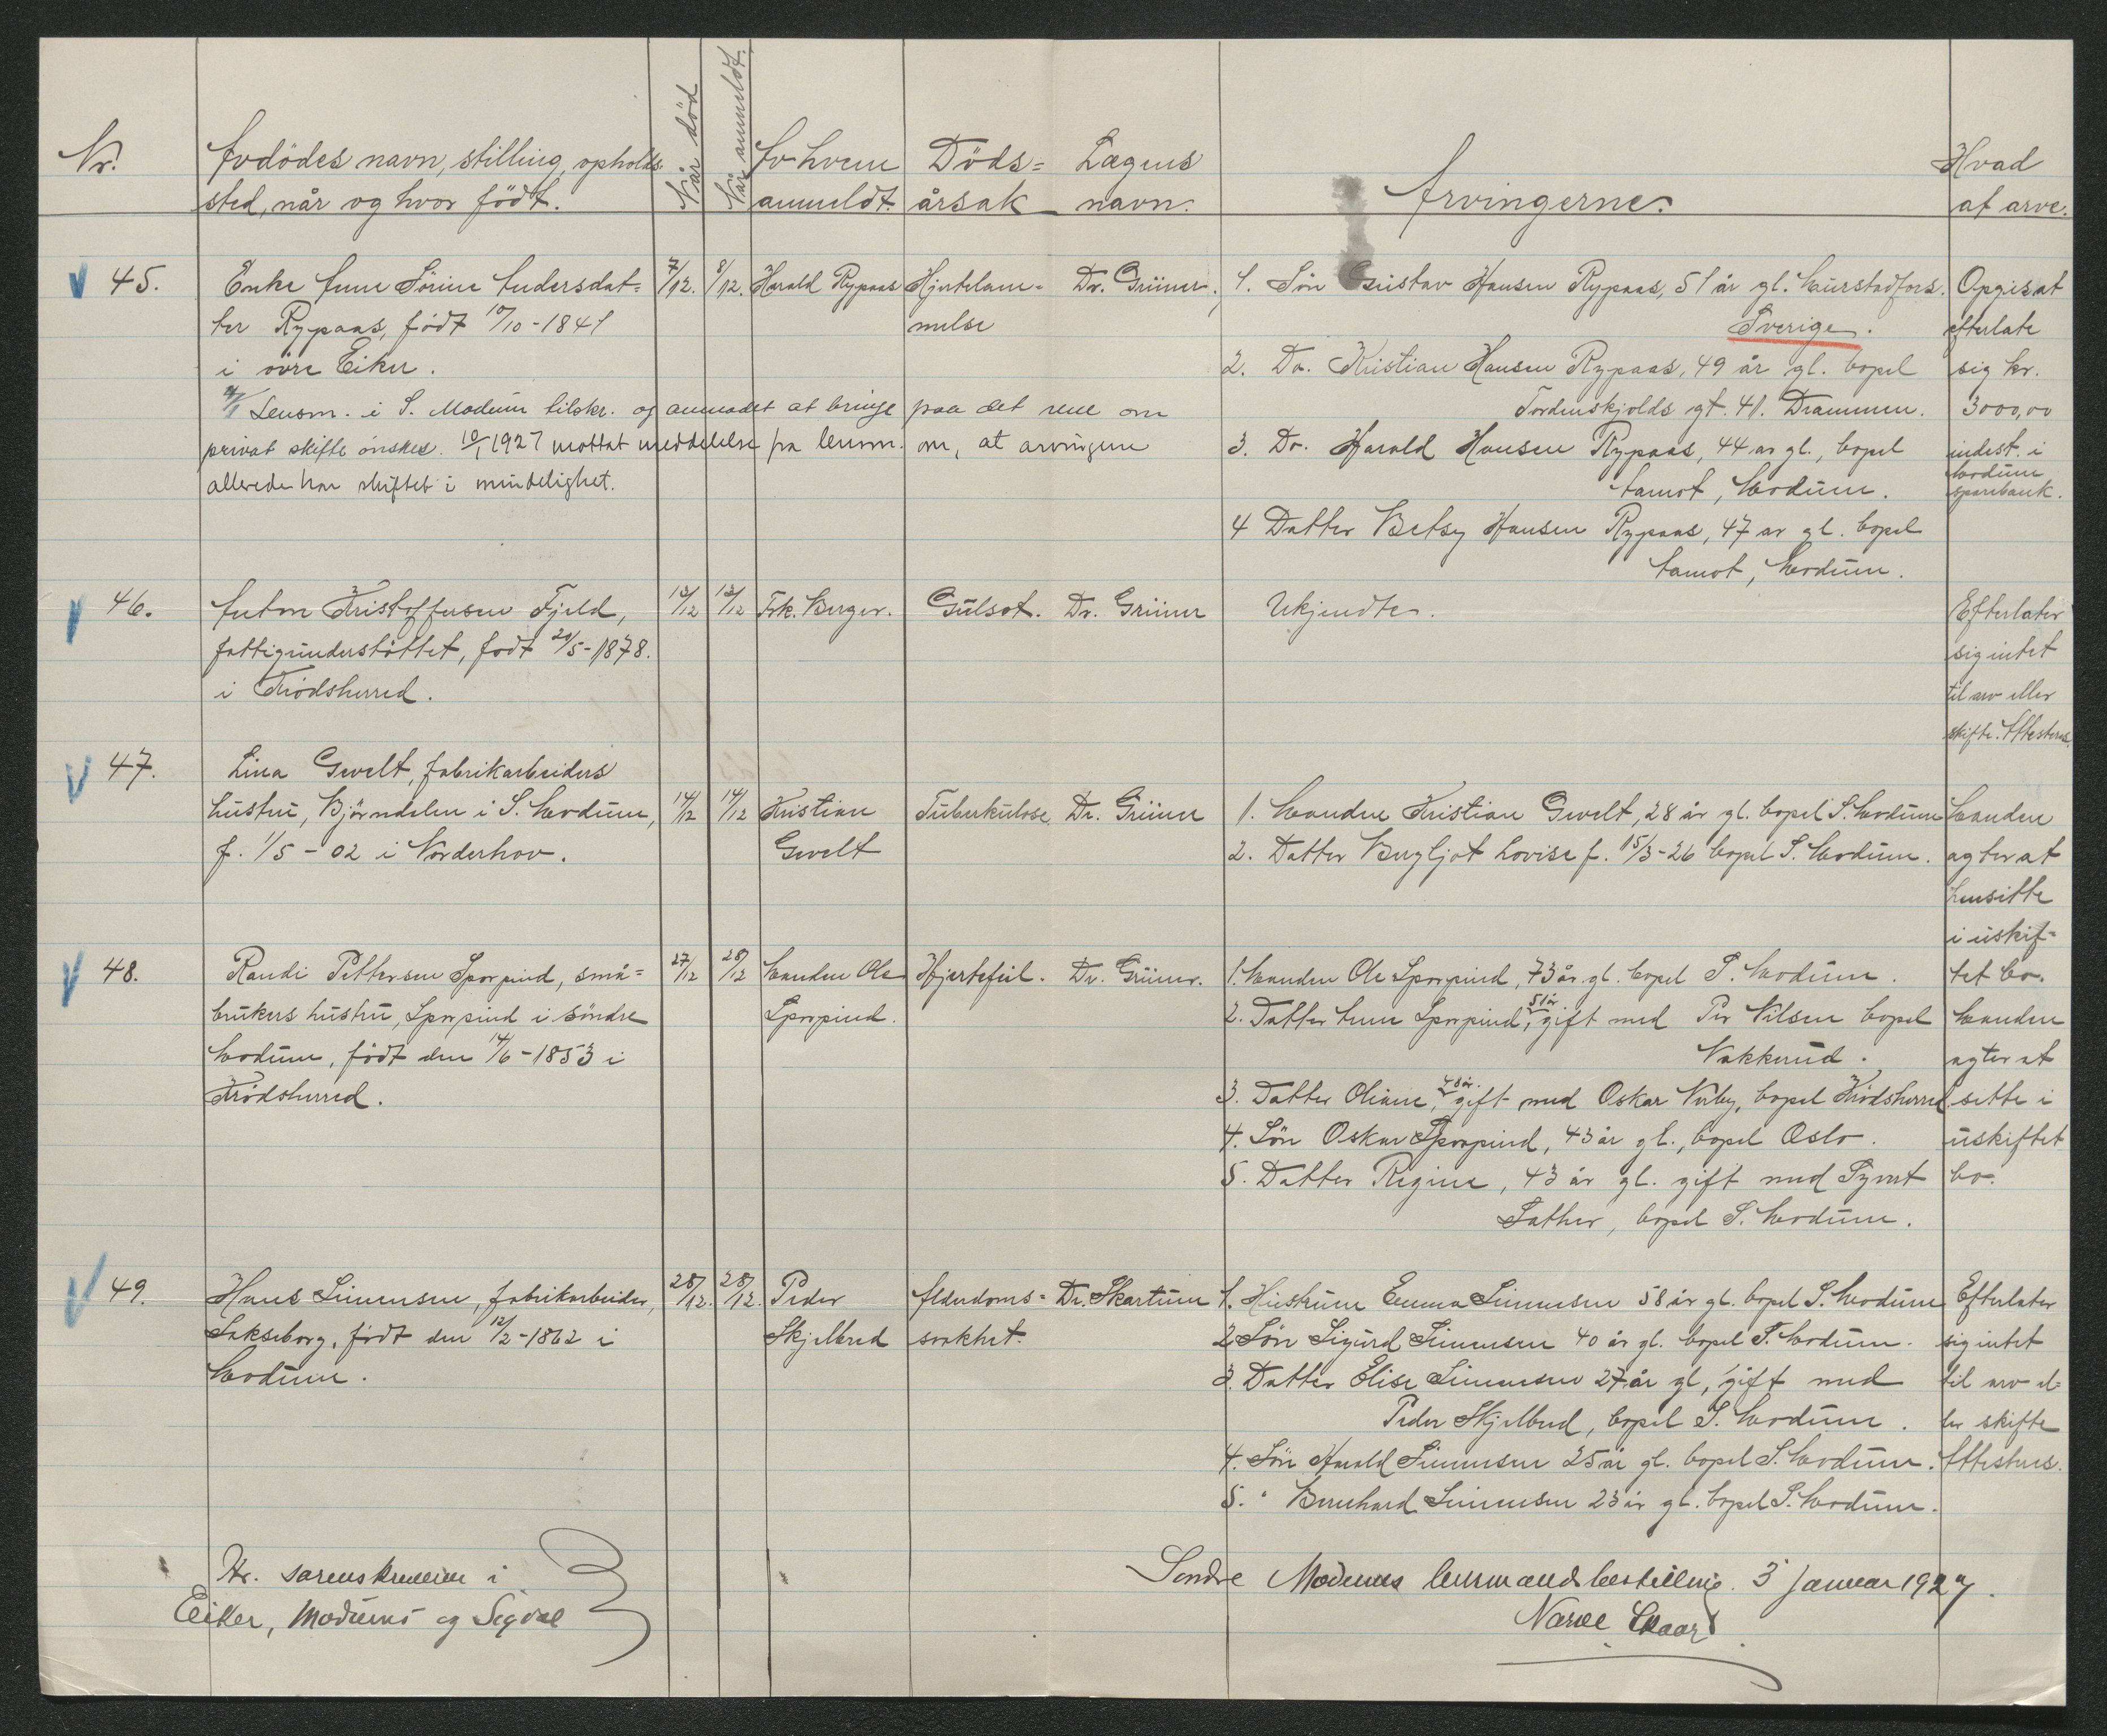 Nr.
Avdödes navn, stilling, opholds-
sted, når og hvor födt.
Når död
Når anmeldt.
Av hvem
anmeldt.
Döds=
årsak
Lægens
navn.
Arvingerne.
Hvad
af arve.
45.
Enke Anne Sörine Andersdat=
ter Rypaas, födt 10/10-1841
i övre Eiker.
7/12.
8/12.
Harald Rypaas
Hjertelam-
melse
Dr. Grüner.
1. Sön Gustav Hansen Rypaas, 51 år gl.
Sverige.
2. Do. Kristian Hansen Rypaas, 49 år gl. bopel
Tordenskjolds gt. 41. Drammen.
3. Do. Harald Hansen Rypaas, 44 år gl., bopel
Åmot, Modum.
4 Datter Betsy Hansen Rypaas, 47 år gl. bopel
Åmot, Modum.
Opgis at
efterlate
sig kr.
3000,00
indest. i
Modum
sparebank.
Lensm. i S. Modum tilskr. og anmodet at bringe paa det rene om
privat skifte önskes. 10/1 1927 mottat meddelelse fra lensm. om, at arvingene
allerede har skiftet i mindelighet.
46.
Anton Kristoffersen Fjeld,
fattigunderstöttet, födt 20/5-1878.
i Krödsherred.
12/12
13/12
Frk. Berger.
Gulsot.
Dr. Grüner
Ukjendte.
Efterlater
sig intet
til arv eller
skifte. Attesteres.
47.
Lina Gevelt, fabrikarbeiders
hustru, Björndalen i S. Modum,
f. 1/5-02 i Norderhov.
14/12
14/12
Kristian
Gevelt
Tuberkulose
Dr. Grüner
1. Manden Kristian Gevelt, 28 år gl. bopel S. Modum
2. Datter Bergljot Lovise f. 15/3-26 bopel S. Modum.
Manden
agter at
hensitte
i uskif=
tet bo.
48.
Randi Pettersen Sporpind, små=
brukers hustru, Sporpind i söndre
Modum, födt den 14/6-1853 i
Krödsherred.
27/12
28/12
Manden Ole
Sporpind.
Hjertefeil.
Dr. Grüner.
1. Manden Ole Sporpind, 73 år gl. bopel S. Modum.
2. Datter Anne Sporpind, 51 år, gift med Per Nilsen bopel
Nakkerud.
3. Datter Oline, 48 år. gift med Oskar Nerby, bopel Krödsherred
4. Sön Oskar Sporpind, 43 år gl., bopel Oslo.
5. Datter Regine, 43 år gl. gift med
bopel S. Modum.
Manden
agter at
sitte i
uskiftet
bo.
49.
Hans Simensen, fabrikarbeider,
Lakseborg, födt den 12/2-1862 i
Modum.
28/12.
28/12.
Peder
Skjelbred
Alderdoms=
svakhet.
Dr. Skartum
1. Hustruen Emma Simensen 58 år gl. bopel S. Modum
2. Sön Sigurd Simensen 40 år gl. bopel S. Modum.
3. Datter Elise Simensen 27 år gl, gift med
Peder Skjelbred, bopel S. Modum.
4. Sön Harald Simensen 25 år gl. bopel S. Modum.
5. " Bernhard Simensen 23 år gl. bopel S. Modum.
Efterlater
sig intet
til arv el=
ler skifte
Attesteres.
Hr. sorenskriveren i
Eiker, Modums og Sigdal
Söndre Modums lensmandsbestilling. 3 januar 1927.
Narve Skaar